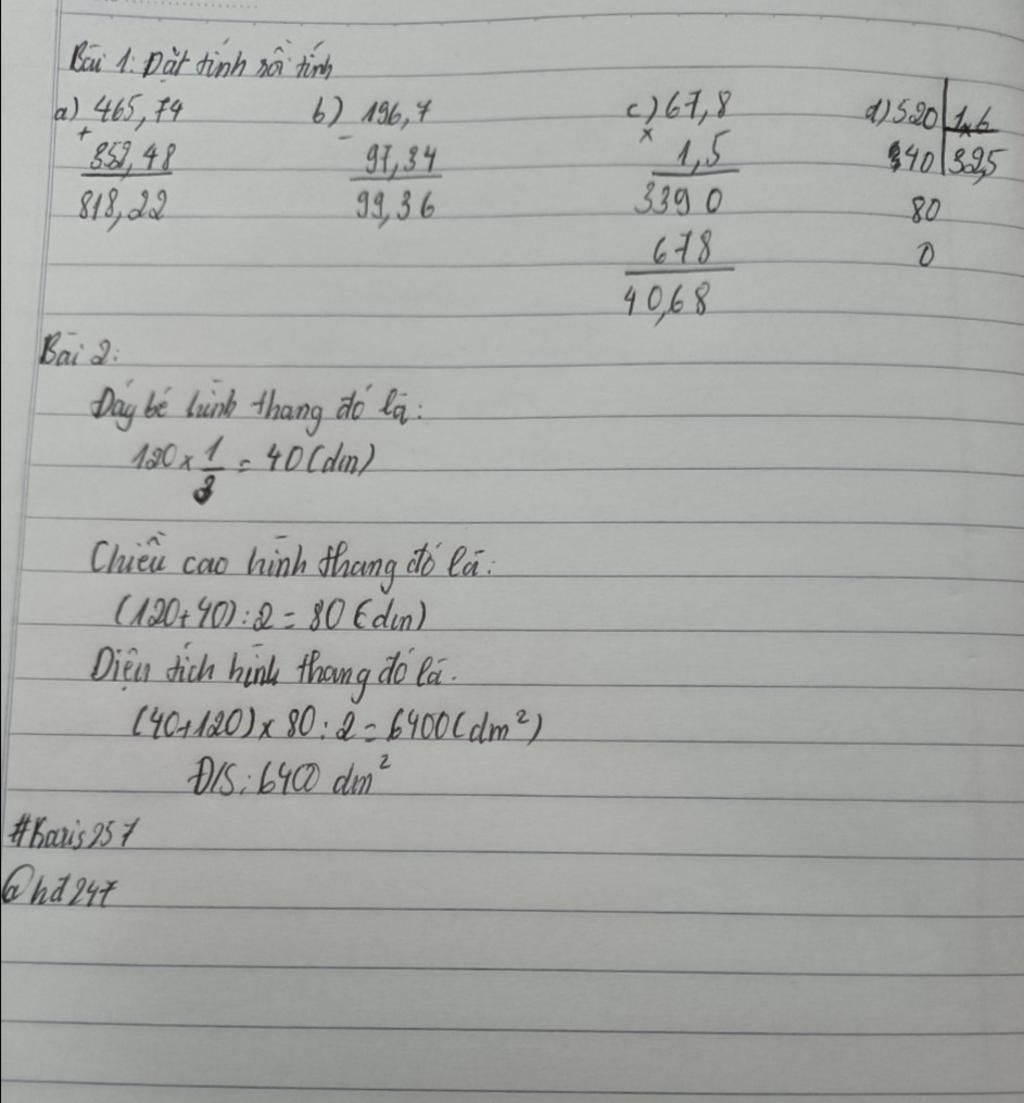 Bài 1: Đặt tính rồi tính
a) 465,74 b) 196,7 c) 67,8 d) 520 | 1,6
+ - x
352,48 97,34 1,5 340 | 32,5
818,22 99,36 3390 80
678 0
40,68
Bài 2:
Đáy bé hình thang đó là:
120 x 1/3 = 40 (dm)
Chiều cao hình thang đó là:
(120+40) : 2 = 80 (dm)
Diện tích hình thang đó là.
(40+120) x 80 : 2 = 6400 (dm²)
Đ/S: 6400 dm²
#Baris257
@hđ247